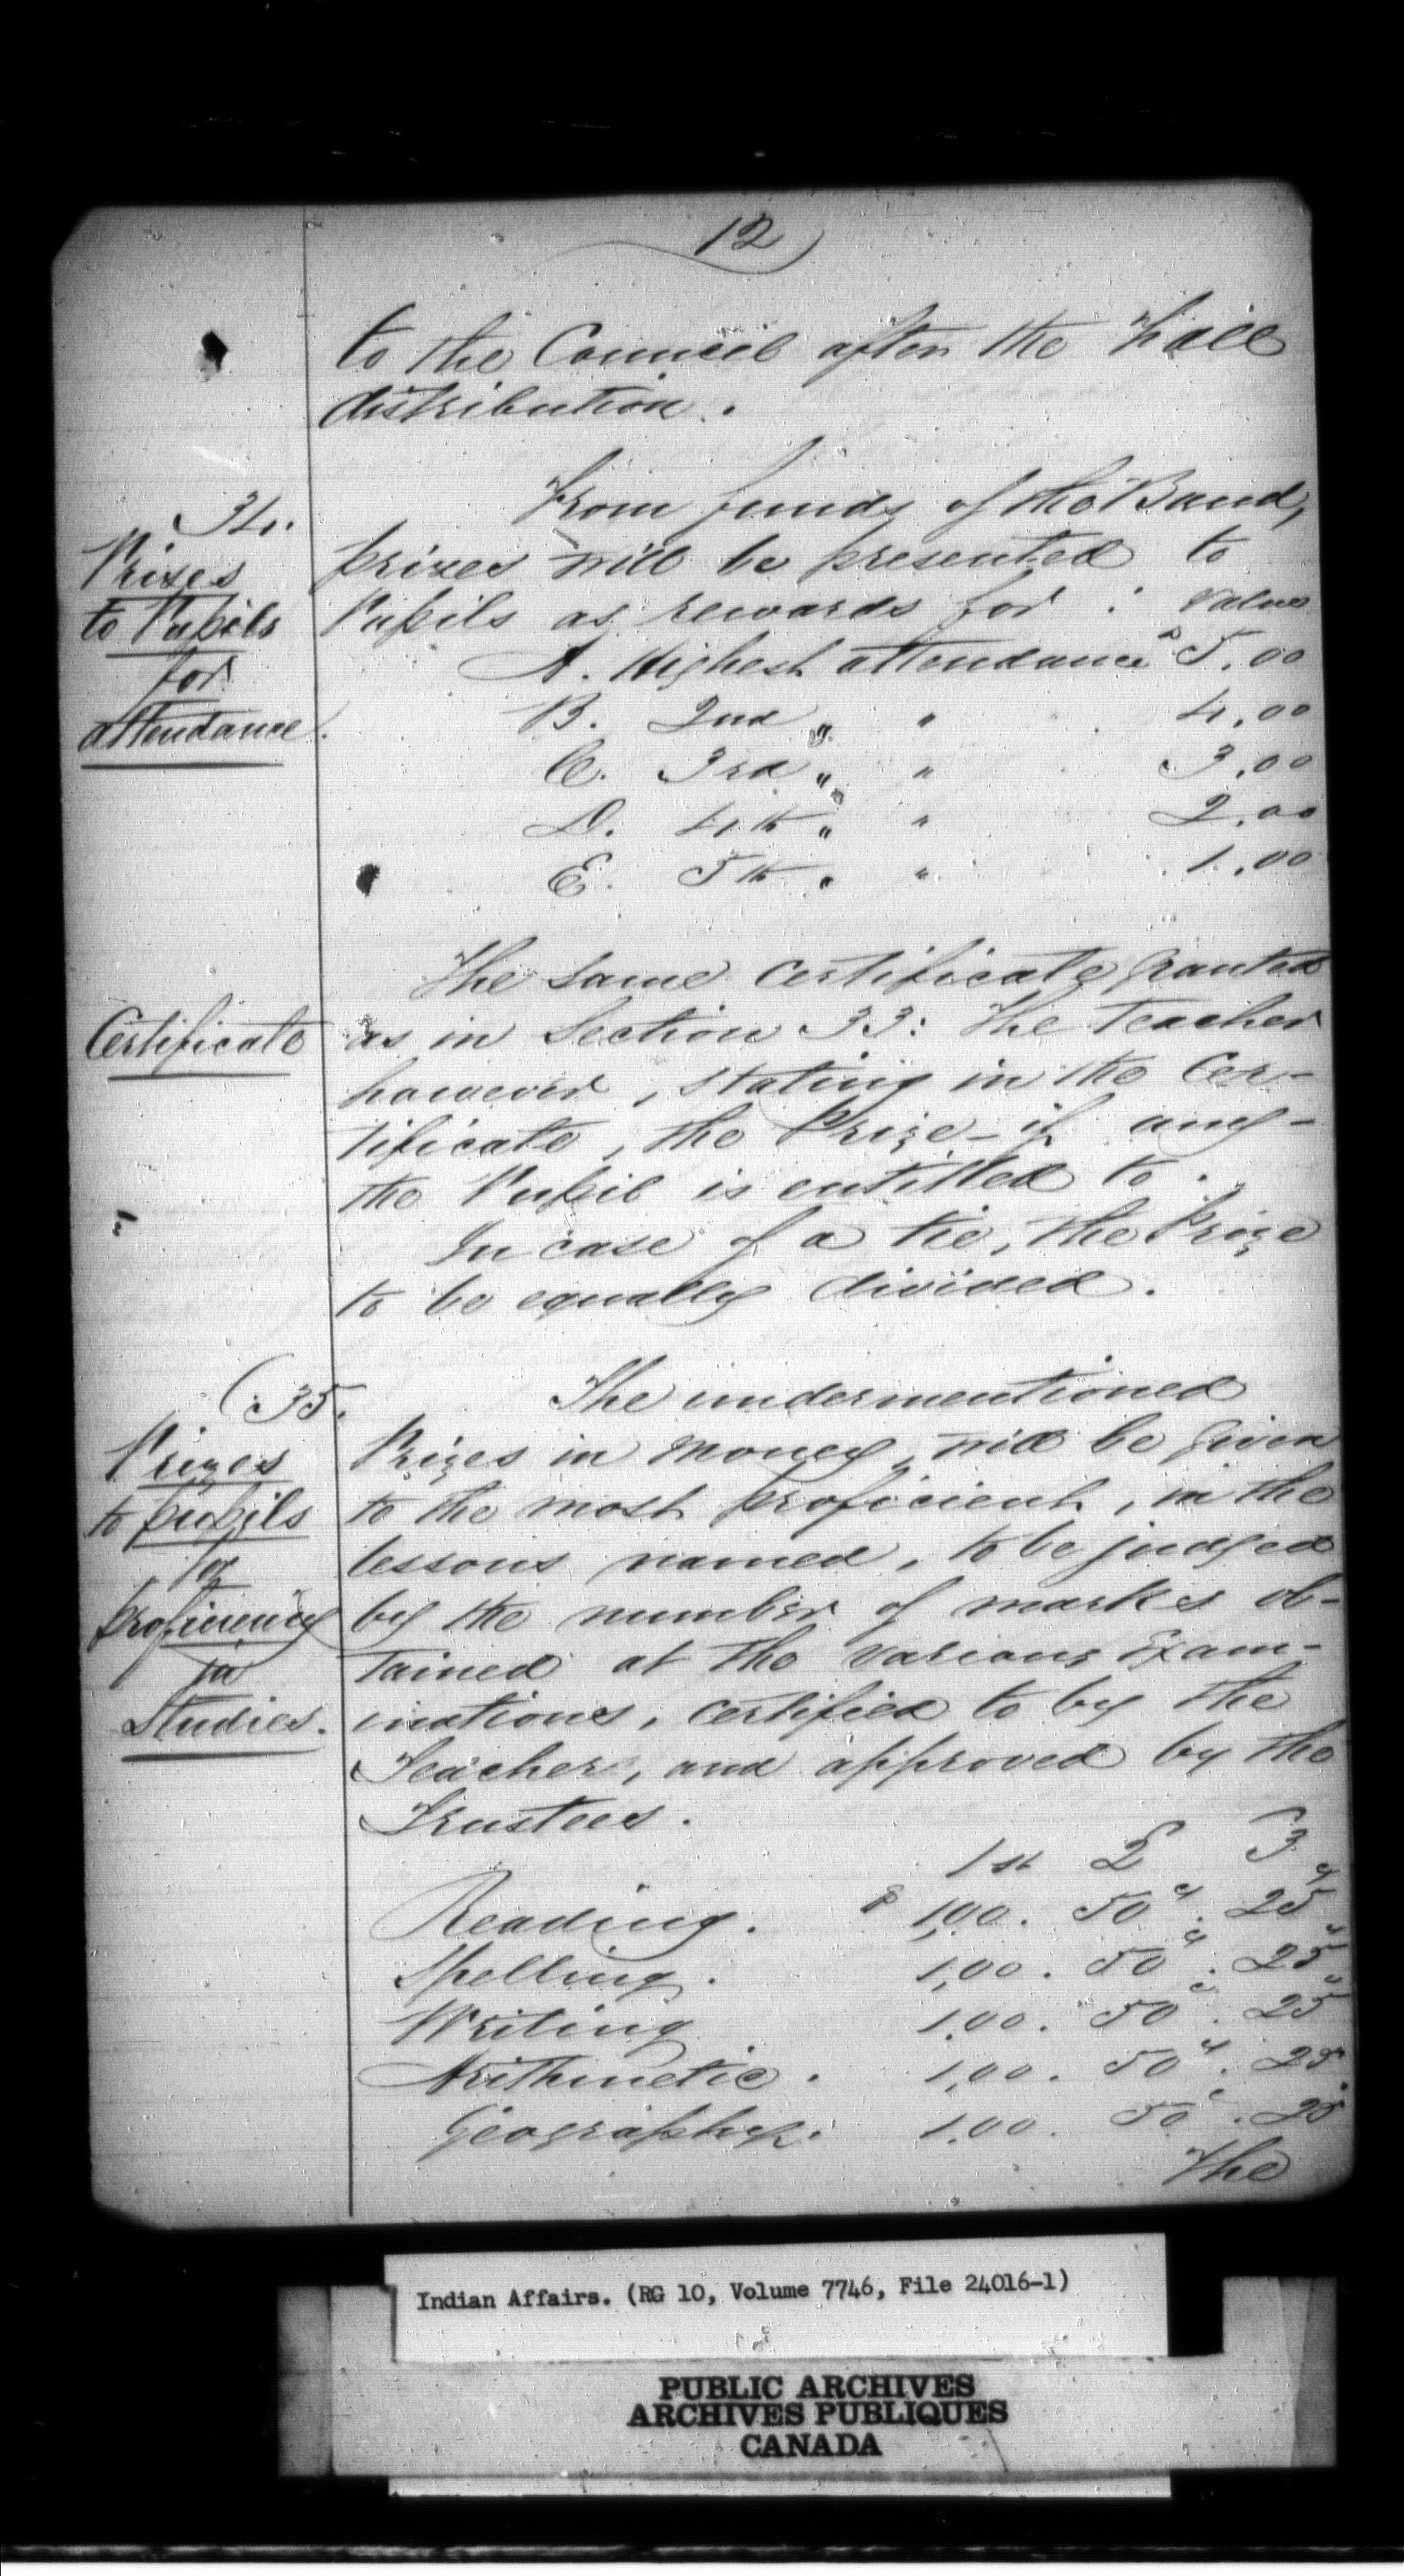 12
to the Council after the Fall
distribution.
34.
Prizes
to Pupils
for
attendance.
From funds of the Band,
prizes will be presented to
Pupils as rewards for : Value
A. Highest attendance $ 5.00
B. 2nd " " 4.00
C. 3rd " " 3.00
D. 4th " " 2.00
E. 5th " " 1.00
Certificate
The same certificate granted
as in Section 33: The Teacher
however, stating in the Cer-
tificate, the Prize - if any -
the Pupil is entitled to.
In case of a tie, the Prize
to be equally divided.
35.
Prizes
to pupils
for
proficiency
in
Studies.
The undermentioned
Prizes in money, will be given
to the most proficient, in the
lessons named, to be judged
by the number of marks ob-
tained at the various Exam-
inations, certified to by the
Teacher, and approved by the
Trustees.
1st 2 3
Reading. $ 1,00. 50c. 25c
Spelling. 1,00. 50c. 25c
Writing 1.00. 50c. 25c
Arithmetic. 1,00. 50c. 25
Geography. 1.00. 50c. 25
The
Indian Affairs. (RG 10, Volume 7746, File 24016-1)
PUBLIC ARCHIVES
ARCHIVES PUBLIQUES
CANADA